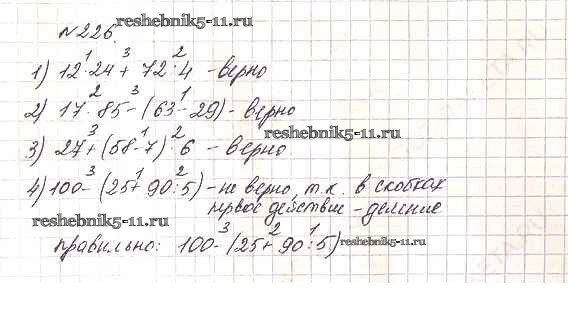 №226.
reshebnik5-11.ru
1) 12¹·24 +³ 72 ²· 4 - верно
2) 17 ²· 85 -³ (63 -¹ 29) - верно
reshebnik5-11.ru
3) 27 +³ (58 -¹ 7) ²· 6 - верно
4) 100 -³ (25 +¹ 90 :² 5) - не верно, т.к. в скобках
первое действие - деление
reshebnik5-11.ru
правильно: 100 -³ (25 +² 90 :¹ 5)
reshebnik5-11.ru